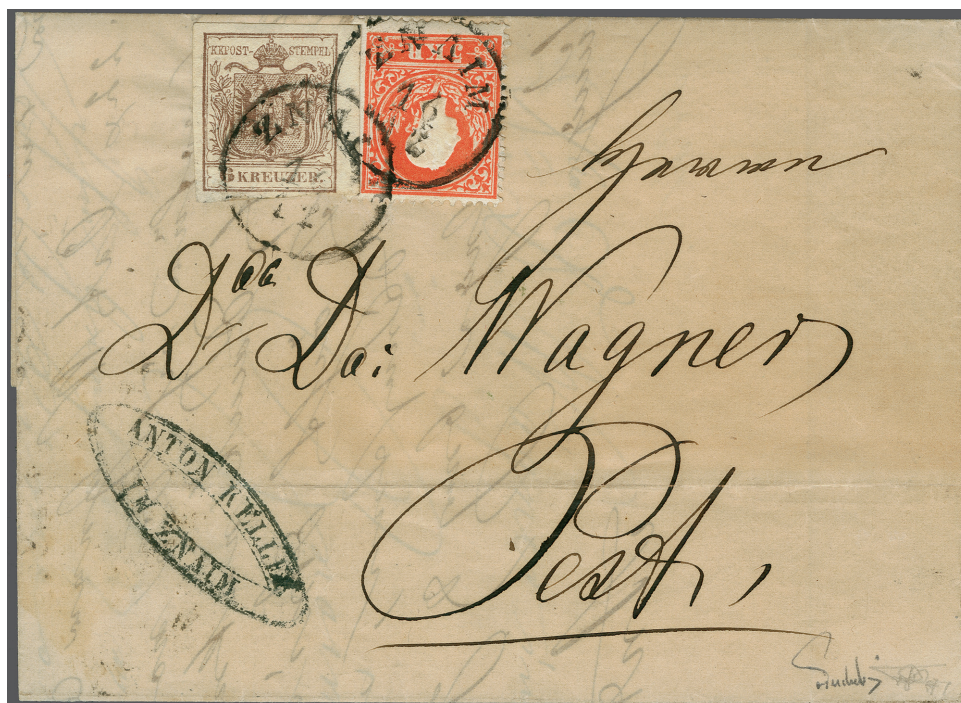 KKPOST-STEMPEL
6 KREUZER.
ZNAIM
Herrn
D. Wagner
Pest,
ANTON KELLER
IN ZNAIM